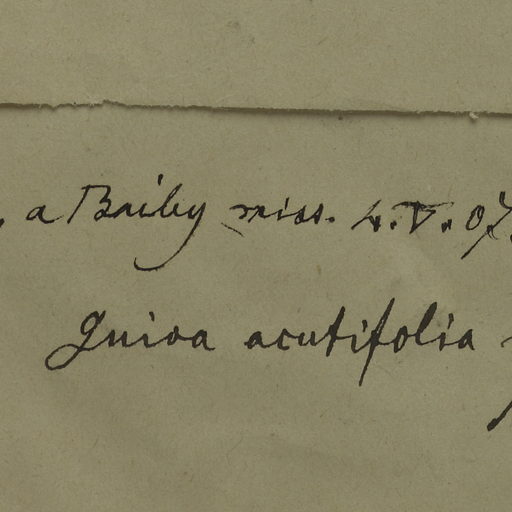 a Bailey miss. 4.V.07.
Guioa acutifolia